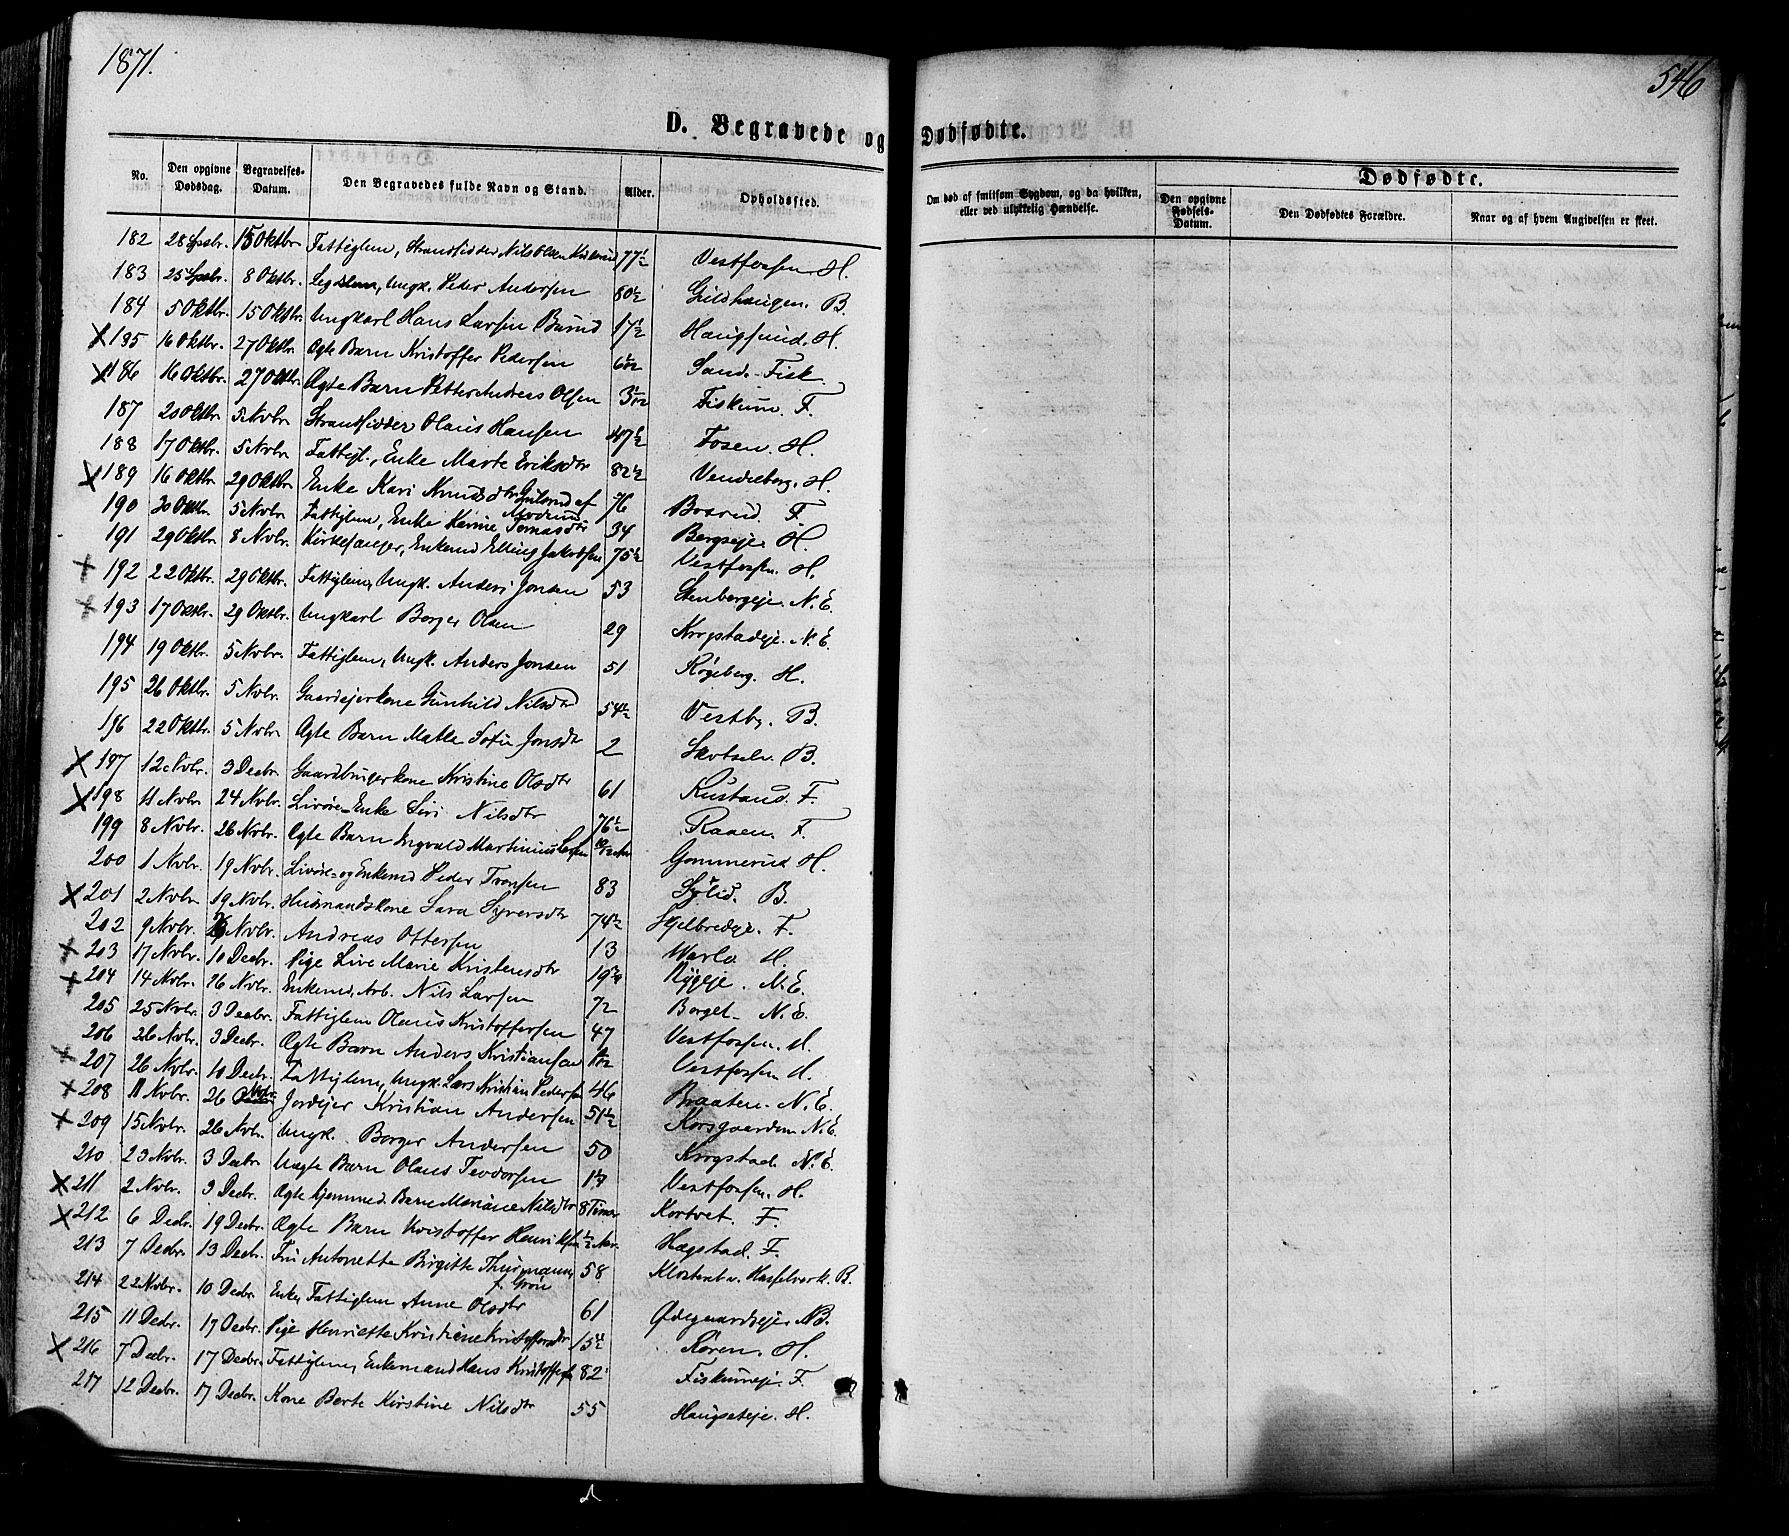 1871.
546
D. Begravede og Dødfødte.
No. Den opgivne Dødsdag. Begravelses-Datum. Den Begravedes fulde Navn og Stand. Alder. Opholdssted. Om død af smitsom Sygdom, og da hvilken, eller ved ulykkelig Hændelse. Dødfødte. Den opgivne Fødsels-Datum. Den Dødfødtes Forældre. Naar og af hvem Angivelsen er skeet.
182 28 Sepbr. 15 Oktbr. Fattiglem, Strandsidder Nils Olsen 77½ Vestfossen. H.
183 25 Sepbr. 8 Oktbr. Ungk. Peder Andersen 80½ Guldhaugen. B.
184 5 Oktbr. 15 Oktbr. Ungkarl Hans Larsen 17½ Haugsund. H.
185 16 Oktbr. 27 Oktbr. Ægte Barn Kristoffer Pedersen Sand. Fisk.
186 16 Oktbr. 27 Oktbr. Ægte Barn Petter Andreas Olsen Fiskum. F.
187 20 Oktbr. 5 Nvbr. Strandsidder Olaus Hansen 47½ Fosen. H.
188 17 Oktbr. 5 Nvbr. Fattigl., Enke Marte Eriksdtr 82½ Vendelborg. H.
189 16 Oktbr. 29 Oktbr. Enke Kari Knudsdtr af Modum 76 Bosrud. F.
190 30 Oktbr. 5 Nvbr. Fattiglem, Enke Karine Tomasdtr 34 Bergseje. H.
191 29 Oktbr. 8 Nvbr. Kirkesanger, Enkemd Elling Jakobsen 75½ Vestfossen. H.
192 22 Oktbr. 29 Oktbr. Fattiglem, Ungk. Anders Jonsen 53 Stenbergeje. N.E.
193 17 Oktbr. 29 Oktbr. Ungkarl Borger Olsen 29 Krogstadeje. N.E.
194 19 Oktbr. 5 Nvbr. Fattiglem, Ungk. Anders Jonsen 51 Røgeberg. H.
195 26 Oktbr. 5 Nvbr. Gaardejerkone Gunhild Nilsdtr 54½ Vestby. B.
196 22 Oktbr. 5 Nvbr. Ægte Barn Matle Sofie Jonsdtr 2 Skotselv. B.
197 12 Nvbr. 3 Decbr. Gaardbrugerkone Kristine Olsdtr 61 Rustand. F.
198 11 Nvbr. 24 Nvbr. Livøre-Enke Siri Nilsdtr 76½ Raaen. F.
199 8 Nvbr. 26 Nvbr. Ægte Barn Ingvald Martinius Larsen Gommerud H.
200 1 Nvbr. 19 Nvbr. Livøre- og Enkemd Peder Tronsen 83 B.
201 2 Nvbr. 19 Nvbr. Husmandskone Sara Syversdtr 74½ Skjelbredeje. F.
202 9 Nvbr. 26 Nvbr. Andreas Ottersen 13 Warlo H.
203 17 Nvbr. 10 Decbr. Pige Live Marie Kristensdtr Ryggeje. N.E.
204 14 Nvbr. 26 Nvbr. Enkemd, Arb. Nils Larsen 72 Borget. N.E.
205 25 Nvbr. 3 Decbr. Fattiglem Olaus Kristoffersen 47 Vestfossen. H.
206 26 Nvbr. 3 Decbr. Ægte Barn Anders Kristiansen Vestfossen H.
207 26 Nvbr. 10 Decbr. Fattiglem, Ungk. Lars Kristian Pedersen 46 Braaten. N.E.
208 11 Nvbr. 26 Nvbr. Jordejer Kristian Andersen 51½ Korsgaarden N.E.
209 15 Nvbr. 26 Nvbr. Ungk. Borger Andersen 50 Krogstad. N.E.
210 23 Nvbr. 3 Decbr. Uægte Barn Olaus Teodorsen Vestfossen. H.
211 2 Nvbr. 3 Decbr. Ægte hjemmed. Barn Mariane Nilsdtr 8 Timer Kortvet. F.
212 6 Decbr. 19 Decbr. Ægte Barn Kristoffer Henriksen Hægstad. F.
213 7 Decbr. 13 Decbr. Fru Antonette Birgitte Thurmann, f. Grøn 58 Hasselverk. B.
214 22 Nvbr. 10 Decbr. Enke, Fattiglem Anne Olsdtr 61 Ødegaardseje. B.
215 11 Decbr. 17 Decbr. Pige Henriette Kristiane Kristoffersdtr 15½ Røren. H.
216 7 Decbr. 17 Decbr. Fattiglem, Enkemand Hans Kristoffersen 82 Fiskumeje. F.
217 12 Decbr. 17 Decbr. Kone Berte Kirstine Nilsdtr 55 Haugseteje. H.